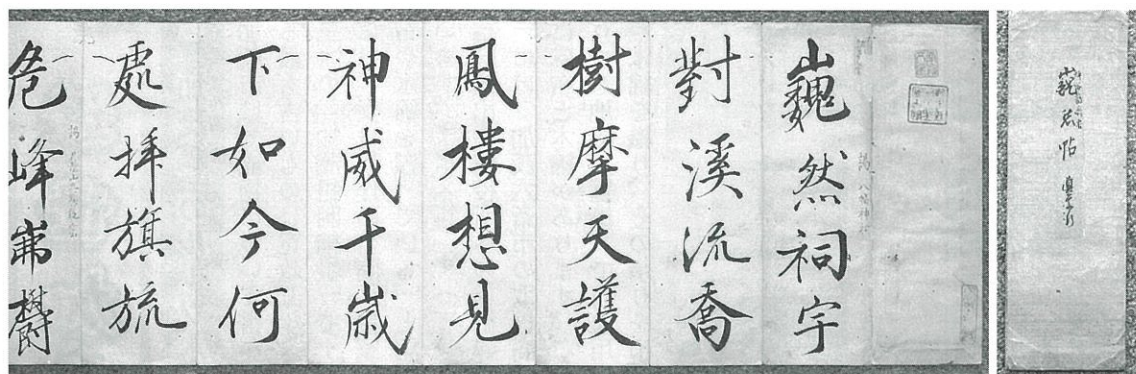 巍然帖
謁八幡神祠
巍然祠宇
對溪流喬
樹摩天護
鳳樓想見
神威千歳
下如今何
處拝旗旒
危峰岪欝